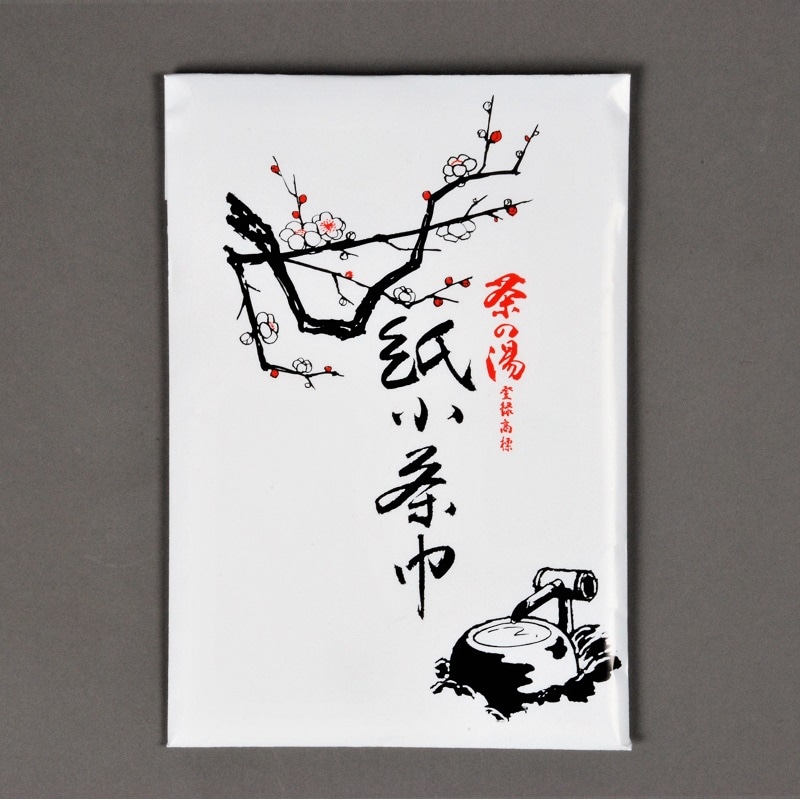 茶の湯
登録商標
紙小茶巾